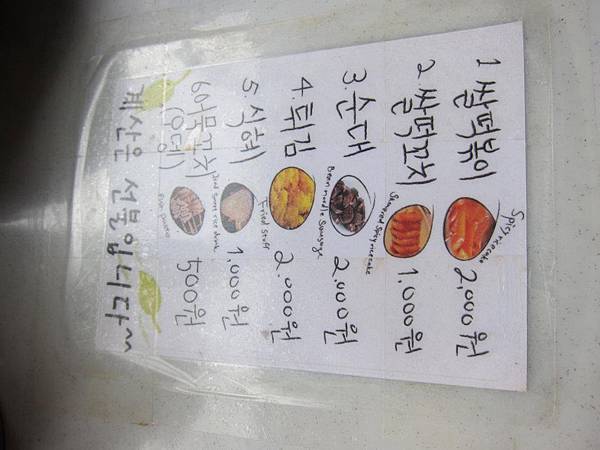 1 쌀떡볶이 Spicy rice cake 2,000원
2. 쌀떡꼬치 Skewered Spicy rice cake 1,000원
3. 순대 Bean noodle Sausage 2,000원
4. 튀김 Fried stuff 2,000원
5. 식혜 rice drink 1,000원
6 어묵꼬치 (오뎅) 500원
계산은 선불입니다~